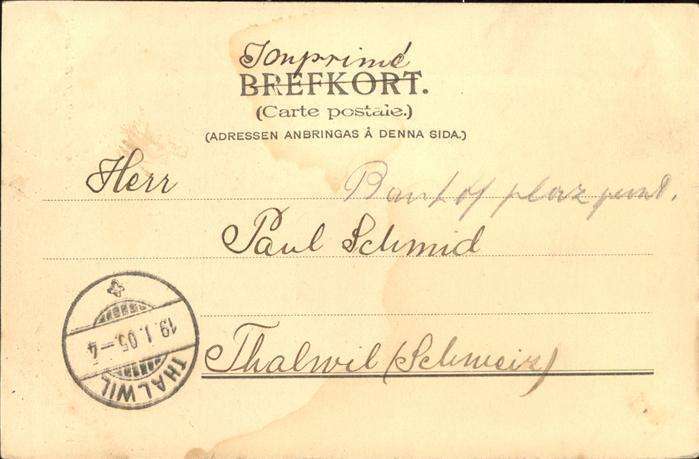 Imprimé
BREFKORT.
(Carte postale.)
(ADRESSEN ANBRINGAS Å DENNA SIDA.)
Herr
Paul Schmid
Thalwil (Schweiz)
19.1.05.–4
THALWIL